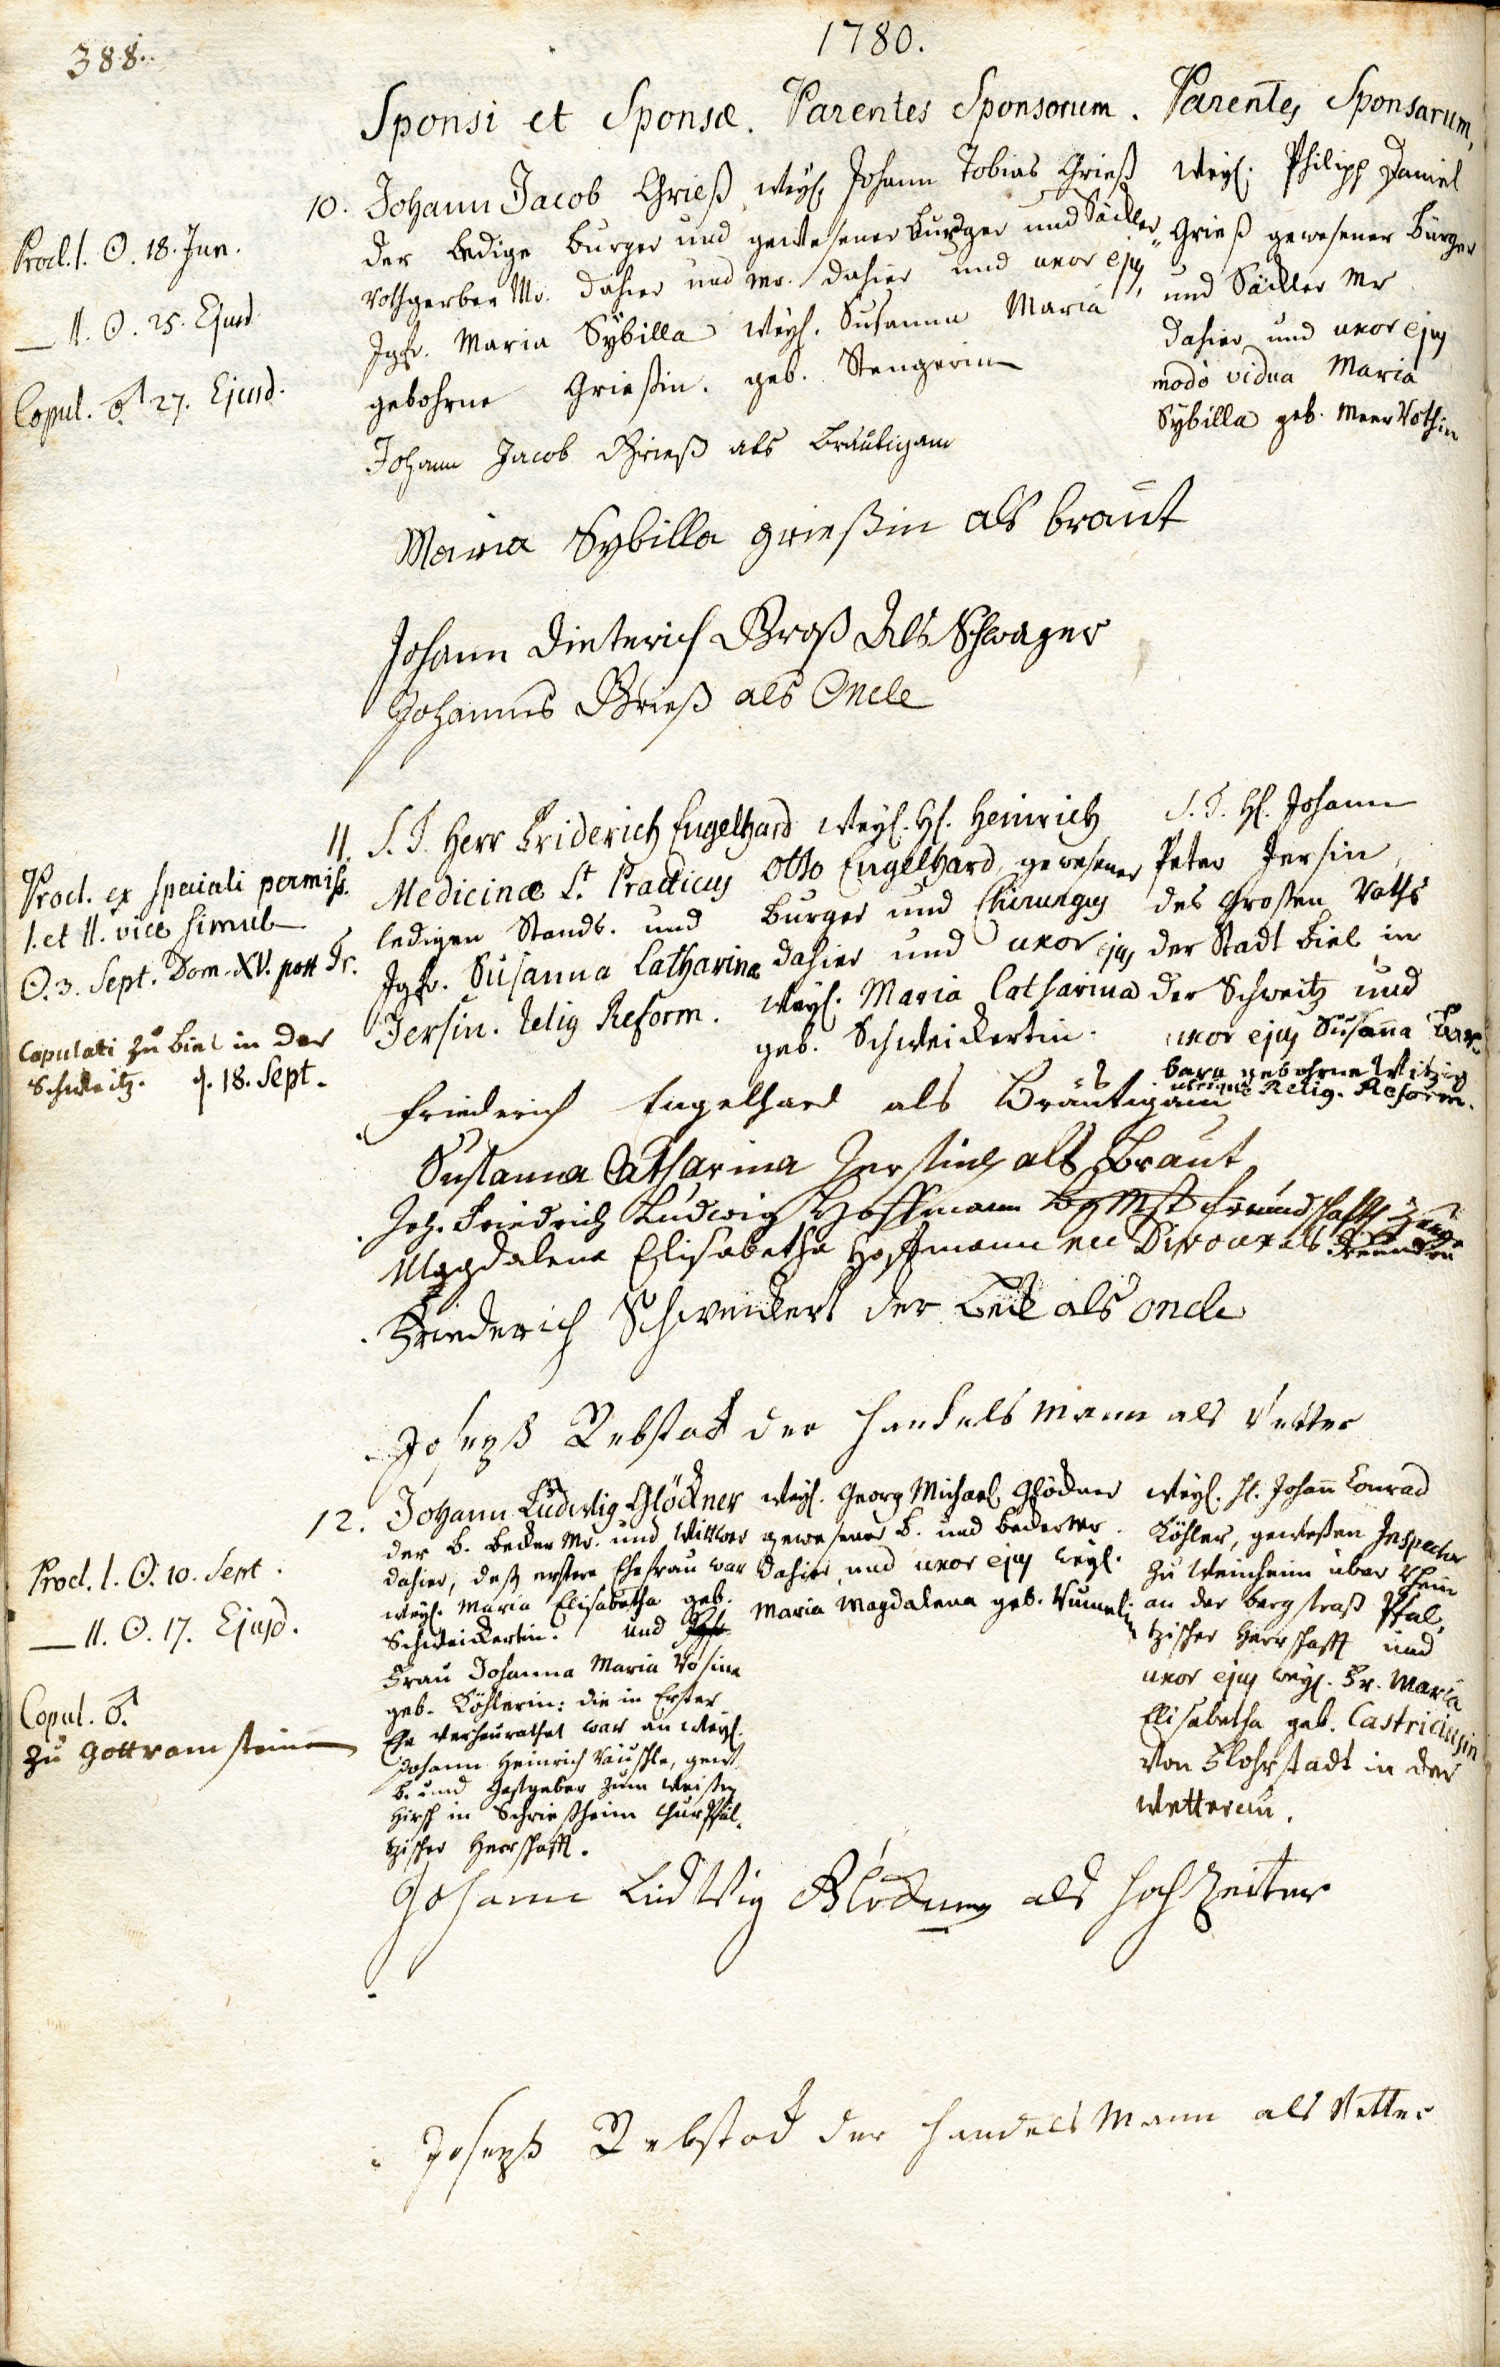 388.
1780.
Sponsi et Sponsæ. Parentes Sponsorum. Parentes Sponsarum,
Procl. I. ☉. 18. Jun.
— II. ☉. 25. Ejusd.
Copul. ♂ 27. Ejusd.
10. Johann Jacob Grieß
der ledige Burger und
Rothgerber Mr. dahier und
Jgfr. Maria Sÿbilla
gebohrne Grießin.
weyl. Johann Tobias Grieß
gewesener Burger und Säckler
Mr. dahier und uxor ejus,
weyl. Susanna Maria
geb. Stengerin
weyl. Philipp Daniel
Grieß gewesener Bürger
und Säckler Mr
dahier und uxor ejus
modò vidua Maria
Sybilla geb. Meerrothin
Johann Jacob Grieß als Bräutigam
Maria Sybilla grießin als braut
Johann Dieterich Groß Als Schwager
Johannes Grieß als Oncle
Procl. ex speciali permiss.
I. et II. vice simul
☉. 3. Sept. Dom. XV. post Tr.
Copulati zu Biel in der
Schweitz. d. 18. Sept.
11. S. T. Herr Friderich Engelhard
Medicinæ Lt. Practicus
ledigen Stands. und
Jgfr. Susanna Catharina
Jersin. Relig Reform.
weyl. H. Heinrich
Otto Engelhard gewesener
Burger und Chirurgus
dahier und uxor ejus
weyl. Maria Catharina
geb. Schweickertin.
S. T. H. Johann
Peter Jersin,
des Großen Raths
der Stadt Biel in
der Schweitz und
uxor ejus Susana Bar-
bara gebohrne Witzig
utrique Relig. Reform.
Friederich Engelhard als Bräutigam
Susanna Catharina Jersin als Braut
Joh. Friedrich Ludwig Hoffmann freundschaffts Zeuge
Magdalena Elisabetha Hoffmann als freundin
Friederich Schweickert der als oncle
Joseph Rebstock der handelsmann als Vetter
Procl. I. ☉. 10. Sept.
— II. ☉. 17. Ejusd.
Copul. ♂.
zu Gottramstein
12. Johann Ludwig Glöckner
der B. Becker Mr. und Wittwer
dahier, deß erstere Ehefrau war
weyl. Maria Elisabetha geb.
Schweickertin. und Jgfr.
Frau Johanna Maria
geb. Köhlerin: die in Erster
Ehe verheurathet war an weyl.
Johann Heinrich Räuschle, gew.
B. und Gastgeber zum weisen
Hirsch in Schrießheim Churpfäl-
tzischer Herrschafft.
weyl. Georg Michael Glöckner
gewesener B. und Becker Mr.
dahier und uxor ejus weyl.
Maria Magdalena geb.
weyl. H. Johann Conrad
Köhler, gewesten Inspector
zu Weinheim über Rhein
an der bergstraß Pfäl-
tzischer Herrschafft und
uxor ejus weyl. Fr. Maria
Elisabetha geb. Castriciusin
von Flohrstadt in der
Wetterau.
Johann Ludwig Glöckner als hochzeiter
Joseph Rebstock der handels Mann als Vetter